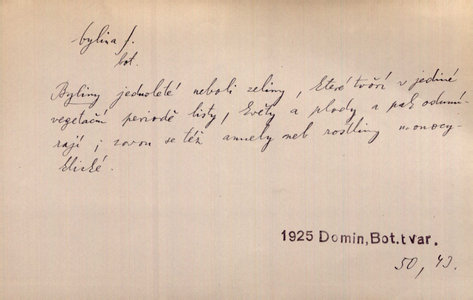 bylina f.
bot.
Byliny jednoleté neboli zeliny, které tvoří v jediné
vegetační periodě listy, květy a plody a pak odumí
rají; zovou se též annuely neb rostliny monocy-
klické.
1925 Domin, Bot. tvar.
50, 43.